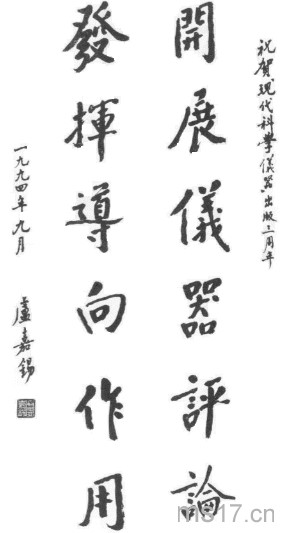 祝賀現代科學儀器出版三周年
開展儀器評論
發揮導向作用
一九九四年九月
盧嘉錫
ms17.cn